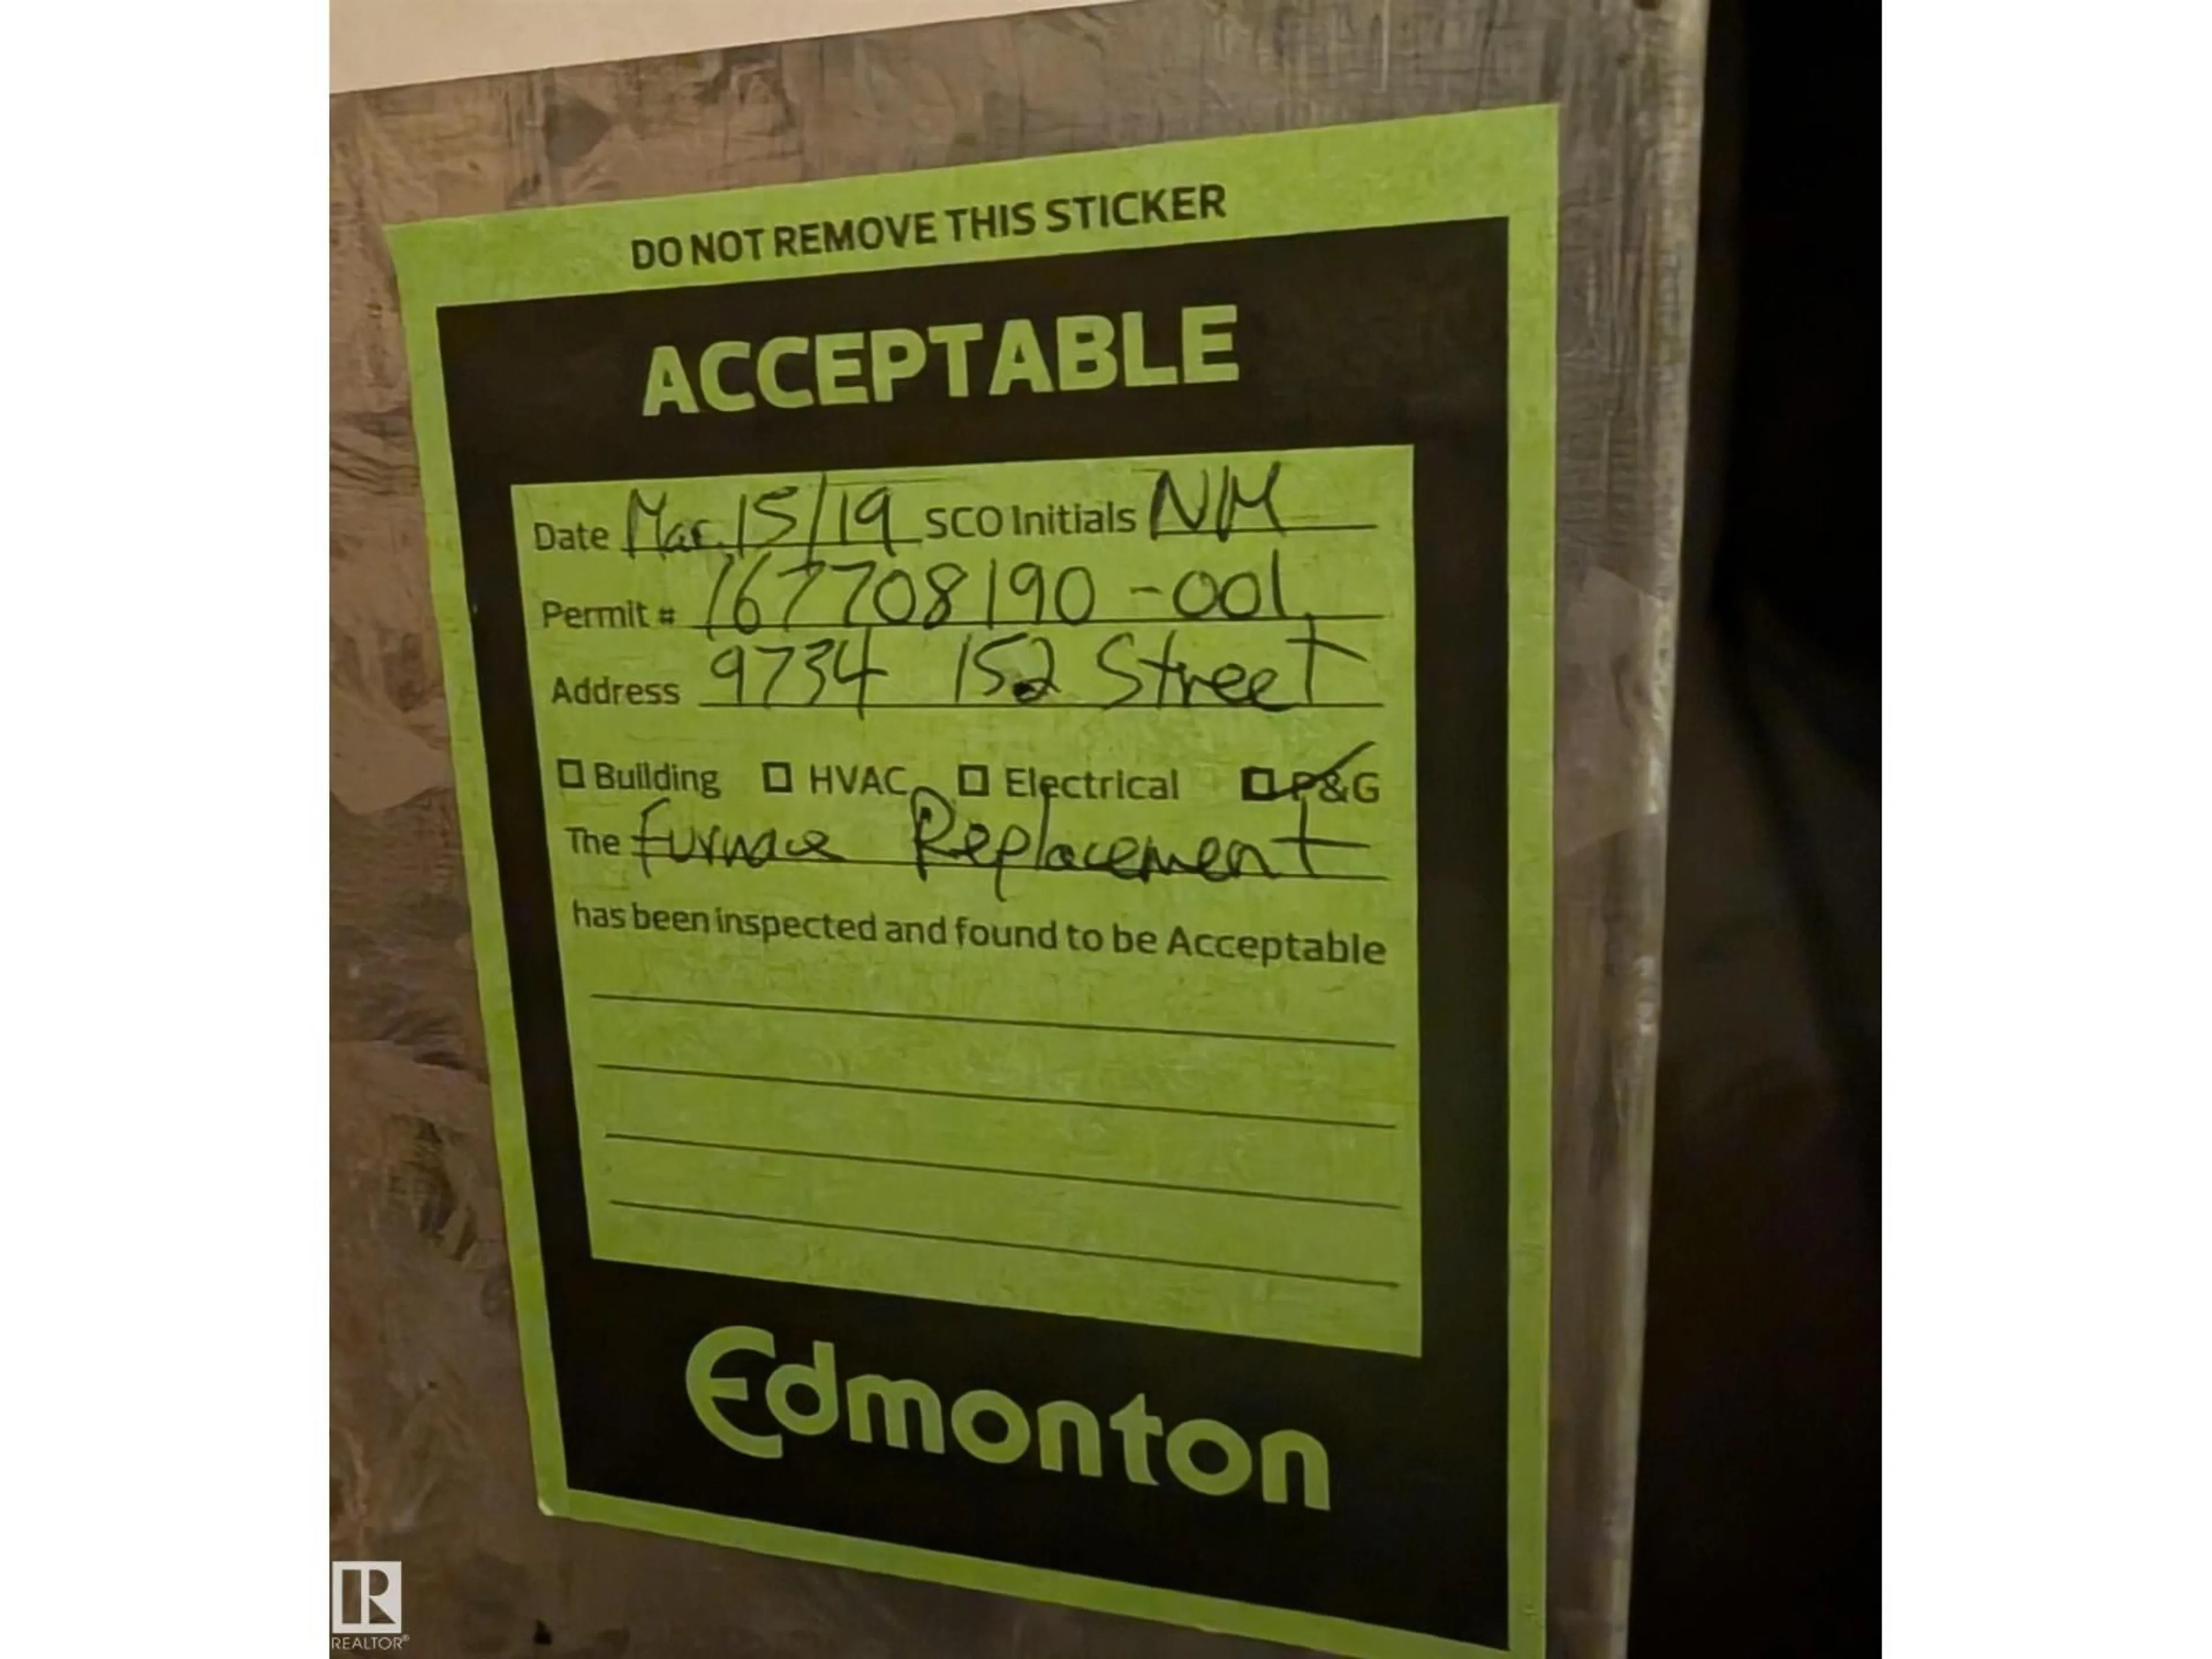 DO NOT REMOVE THIS STICKER
ACCEPTABLE
Date Mar. 15/19 SCO Initials NM
Permit # 167708190-001
Address 9734 152 Street
Building HVAC Electrical P&G
The furnace Replacement
has been inspected and found to be Acceptable
Edmonton
R
REALTOR®